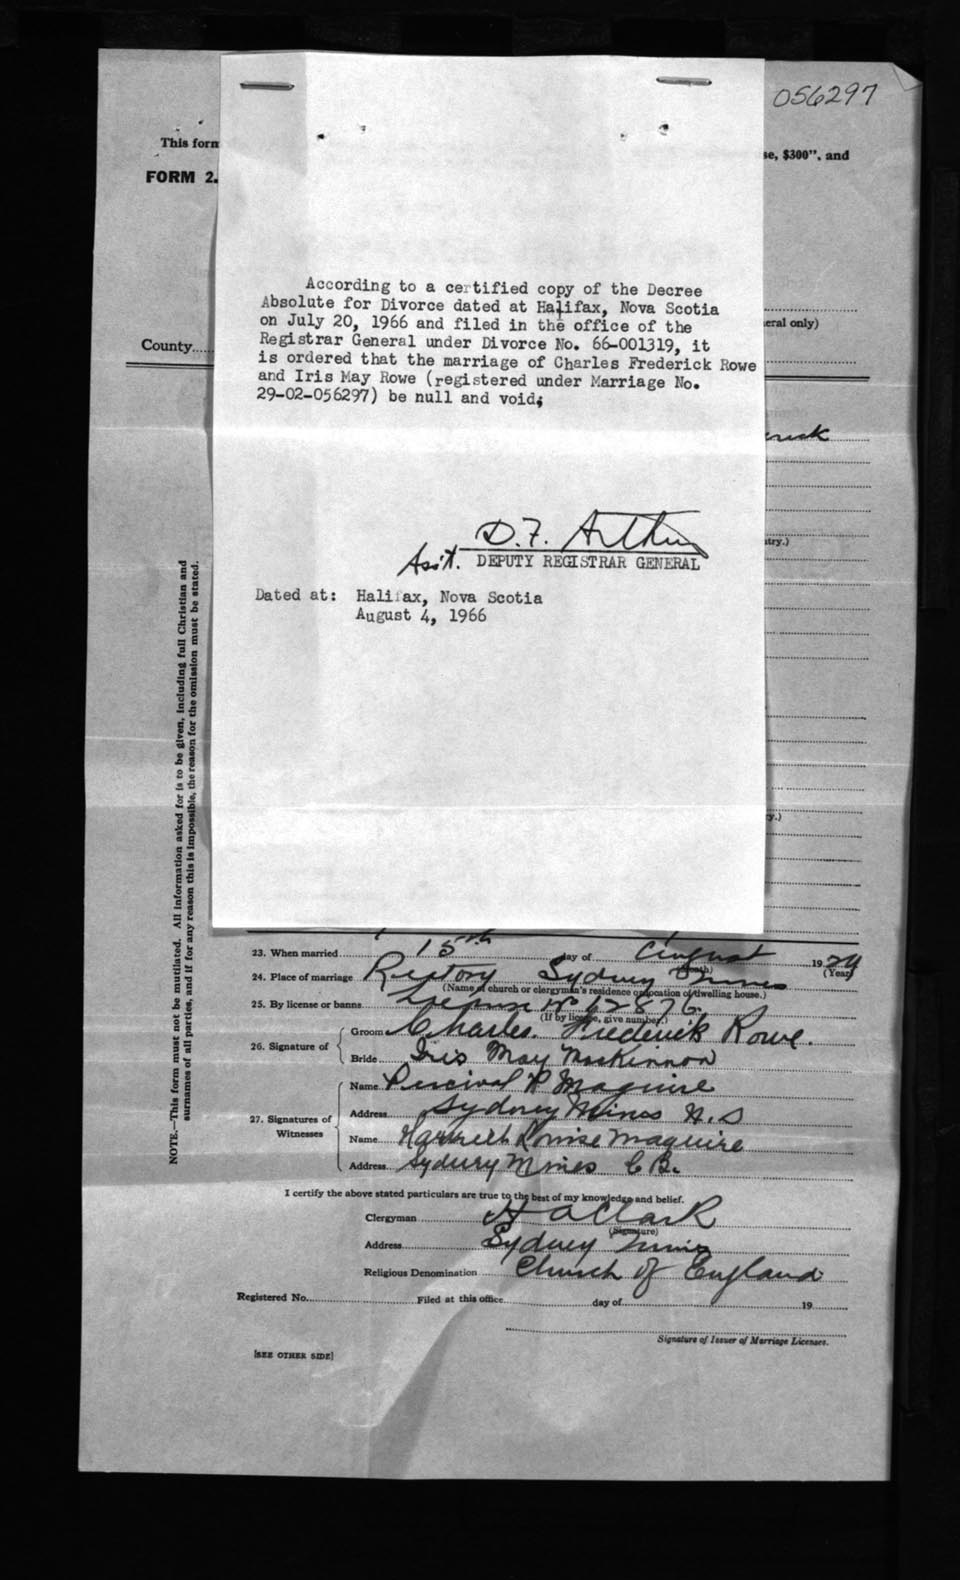 056297
This form
se, $300", and
FORM 2.
According to a certified copy of the Decree
Absolute for Divorce dated at Halifax, Nova Scotia
on July 20, 1966 and filed in the office of the
Registrar General under Divorce No. 66-001319, it
is ordered that the marriage of Charles Frederick Rowe
and Iris May Rowe (registered under Marriage No.
29-02-056297) be null and void;
eral only)
County
erick
try.)
D.F. Arthur
Ass't. DEPUTY REGISTRAR GENERAL
Dated at: Halifax, Nova Scotia
August 4, 1966
y.)
NOTE.—This form must not be mutilated. All information asked for is to be given, including full Christian and
surnames of all parties, and if for any reason this is impossible, the reason for the omission must be stated.
23. When married 15th day of August 1929
(Month) (Year)
24. Place of marriage Rectory Sydney Mines
(Name of church or clergyman's residence or location of dwelling house.)
25. By license or banns License No 62876
(If by license, give number.)
26. Signature of
Groom Charles. Frederick Rowe.
Bride Iris May MacKinnon
27. Signatures of Witnesses
Name Percival R Maguire
Address Sydney Mines N.S
Name Harriett Louise Maguire
Address Sydney Mines C B.
I certify the above stated particulars are true to the best of my knowledge and belief.
Clergyman H A Clark
(Signature)
Address Sydney Mines
Religious Denomination Church of England
Registered No. Filed at this office day of 19
Signature of Issuer of Marriage Licenses.
[SEE OTHER SIDE]